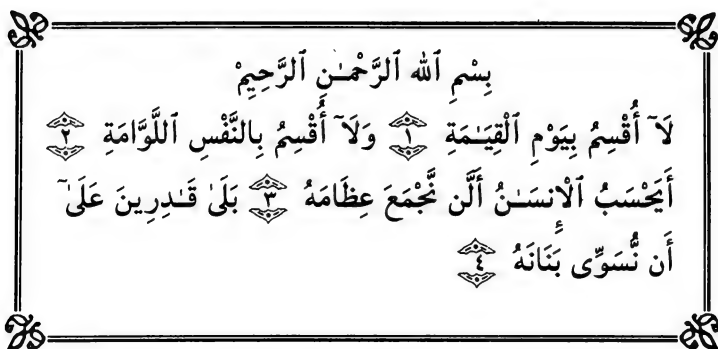 بِسْمِ ٱللَّهِ ٱلرَّحْمَـٰنِ ٱلرَّحِيمِ
لَآ أُقْسِمُ بِيَوْمِ ٱلْقِيَـٰمَةِ ١ وَلَآ أُقْسِمُ بِالنَّفْسِ ٱللَّوَّامَةِ ٢
أَيَحْسَبُ ٱلْإِنسَـٰنُ أَلَّن نَّجْمَعَ عِظَامَهُ ٣ بَلَىٰ قَـٰدِرِينَ عَلَىٰٓ
أَن نُّسَوِّى بَنَانَهُ ٤